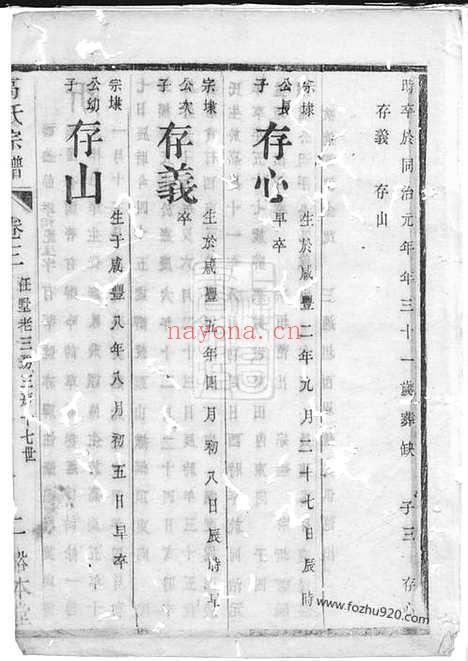 時卒於同治元年年三十一歲葬缺 子三 存心
存義 存山
宗埭公長子 存心 生於咸豐二年九月二十七日辰時
早卒
宗埭公次子 存義 生於咸豐五年四月初八日辰時早
卒
宗埭公幼子 存山 生于咸豐八年八月初五日早卒
高氏宗譜 卷二 任墅老三 十七世 二 本堂
nayona.cn
www.fozhu920.com